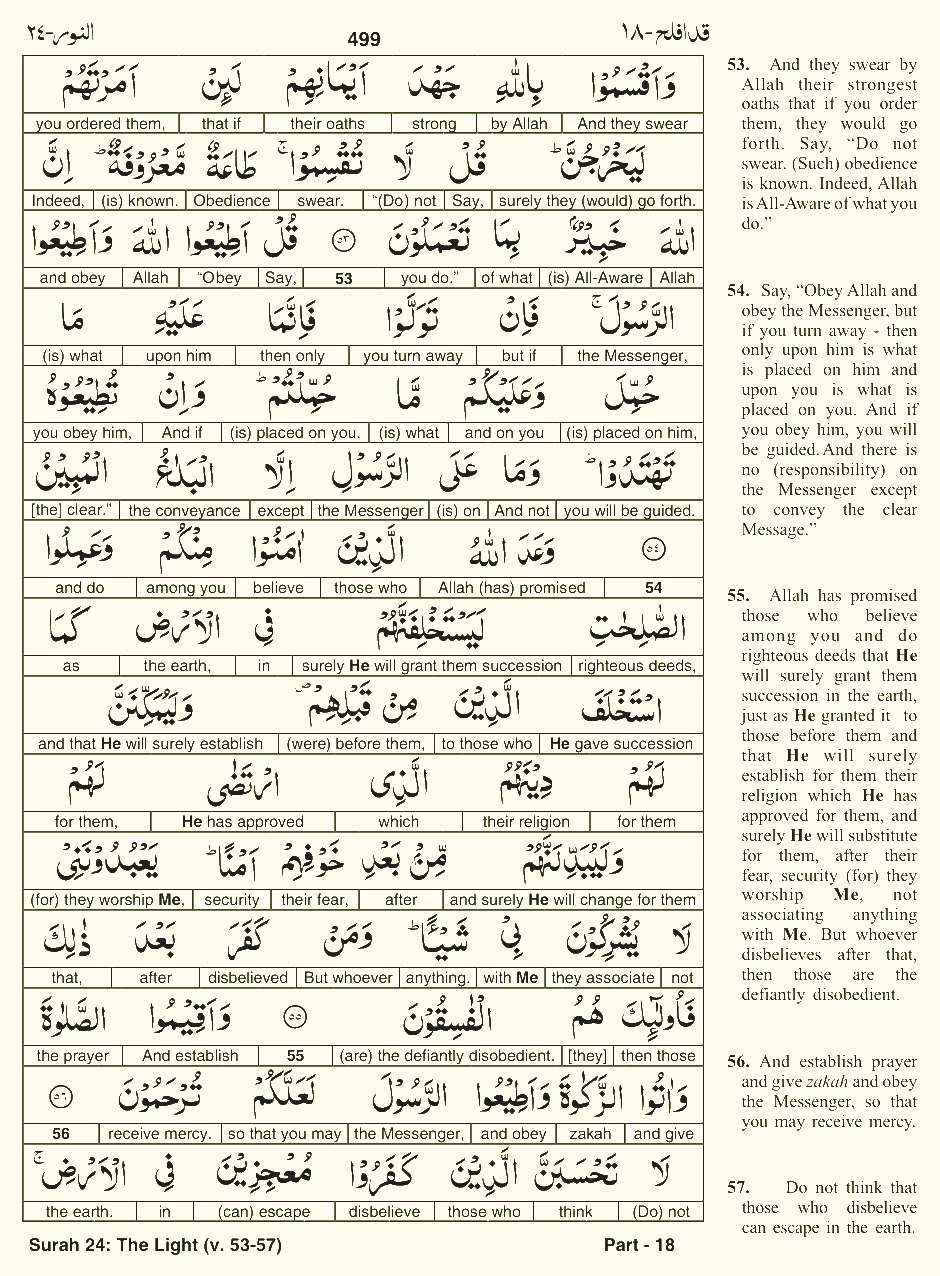 قد افلح-١٨
499
النور-٢٤
وَاَقْسَمُوْا بِاللّٰهِ جَهْدَ اَيْمَانِهِمْ لَىِٕنْ اَمَرْتَهُمْ
And they swear | by Allah | strong | their oaths | that if | you ordered them,
لَيَخْرُجُنَّ ؕ قُلْ لَّا تُقْسِمُوْا ۚ طَاعَةٌ مَّعْرُوْفَةٌ ؕ اِنَّ
surely they (would) go forth. | Say, | “(Do) not | swear. | Obedience | (is) known. | Indeed,
اللّٰهَ خَبِيْرٌۢ بِمَا تَعْمَلُوْنَ ۝٥٣ قُلْ اَطِيْعُوا اللّٰهَ وَاَطِيْعُوا
Allah | (is) All-Aware | of what | you do.” | 53 | Say, | “Obey | Allah | and obey
الرَّسُوْلَ ۚ فَاِنْ تَوَلَّوْا فَاِنَّمَا عَلَيْهِ مَا
the Messenger, | but if | you turn away | then only | upon him | (is) what
حُمِّلَ وَعَلَيْكُمْ مَّا حُمِّلْتُمْ ؕ وَاِنْ تُطِيْعُوْهُ
(is) placed on him, | and on you | (is) what | (is) placed on you. | And if | you obey him,
تَهْتَدُوْا ؕ وَمَا عَلَى الرَّسُوْلِ اِلَّا الْبَلٰغُ الْمُبِيْنُ
you will be guided. | And not | (is) on | the Messenger | except | the conveyance | [the] clear.”
۝٥٤ وَعَدَ اللّٰهُ الَّذِيْنَ اٰمَنُوْا مِنْكُمْ وَعَمِلُوا
54 | Allah (has) promised | those who | believe | among you | and do
الصّٰلِحٰتِ لَيَسْتَخْلِفَنَّهُمْ فِي الْاَرْضِ كَمَا
righteous deeds, | surely He will grant them succession | in | the earth, | as
اسْتَخْلَفَ الَّذِيْنَ مِنْ قَبْلِهِمْ ۪ وَلَيُمَكِّنَنَّ
He gave succession | to those who | (were) before them, | and that He will surely establish
لَهُمْ دِيْنَهُمُ الَّذِى ارْتَضٰى لَهُمْ
for them | their religion | which | He has approved | for them,
وَلَيُبَدِّلَنَّهُمْ مِّنْۢ بَعْدِ خَوْفِهِمْ اَمْنًا ؕ يَعْبُدُوْنَنِيْ
and surely He will change for them | after | their fear, | security | (for) they worship Me,
لَا يُشْرِكُوْنَ بِيْ شَيْـًٔا ؕ وَمَنْ كَفَرَ بَعْدَ ذٰلِكَ
not | they associate | with Me | anything. | But whoever | disbelieved | after | that,
فَاُولٰٓىِٕكَ هُمُ الْفٰسِقُوْنَ ۝٥٥ وَاَقِيْمُوا الصَّلٰوةَ
then those | [they] | (are) the defiantly disobedient. | 55 | And establish | the prayer
وَاٰتُوا الزَّكٰوةَ وَاَطِيْعُوا الرَّسُوْلَ لَعَلَّكُمْ تُرْحَمُوْنَ ۝٥٦
and give | zakah | and obey | the Messenger, | so that you may | receive mercy. | 56
لَا تَحْسَبَنَّ الَّذِيْنَ كَفَرُوْا مُعْجِزِيْنَ فِي الْاَرْضِ ۚ
(Do) not | think | those who | disbelieve | (can) escape | in | the earth.
53. And they swear by
Allah their strongest
oaths that if you order
them, they would go
forth. Say, “Do not
swear. (Such) obedience
is known. Indeed, Allah
is All-Aware of what you
do.”
54. Say, “Obey Allah and
obey the Messenger, but
if you turn away - then
only upon him is what
is placed on him and
upon you is what is
placed on you. And if
you obey him, you will
be guided. And there is
no (responsibility) on
the Messenger except
to convey the clear
Message.”
55. Allah has promised
those who believe
among you and do
righteous deeds that He
will surely grant them
succession in the earth,
just as He granted it to
those before them and
that He will surely
establish for them their
religion which He has
approved for them, and
surely He will substitute
for them, after their
fear, security (for) they
worship Me, not
associating anything
with Me. But whoever
disbelieves after that,
then those are the
defiantly disobedient.
56. And establish prayer
and give zakah and obey
the Messenger, so that
you may receive mercy.
57. Do not think that
those who disbelieve
can escape in the earth.
Surah 24: The Light (v. 53-57)
Part - 18